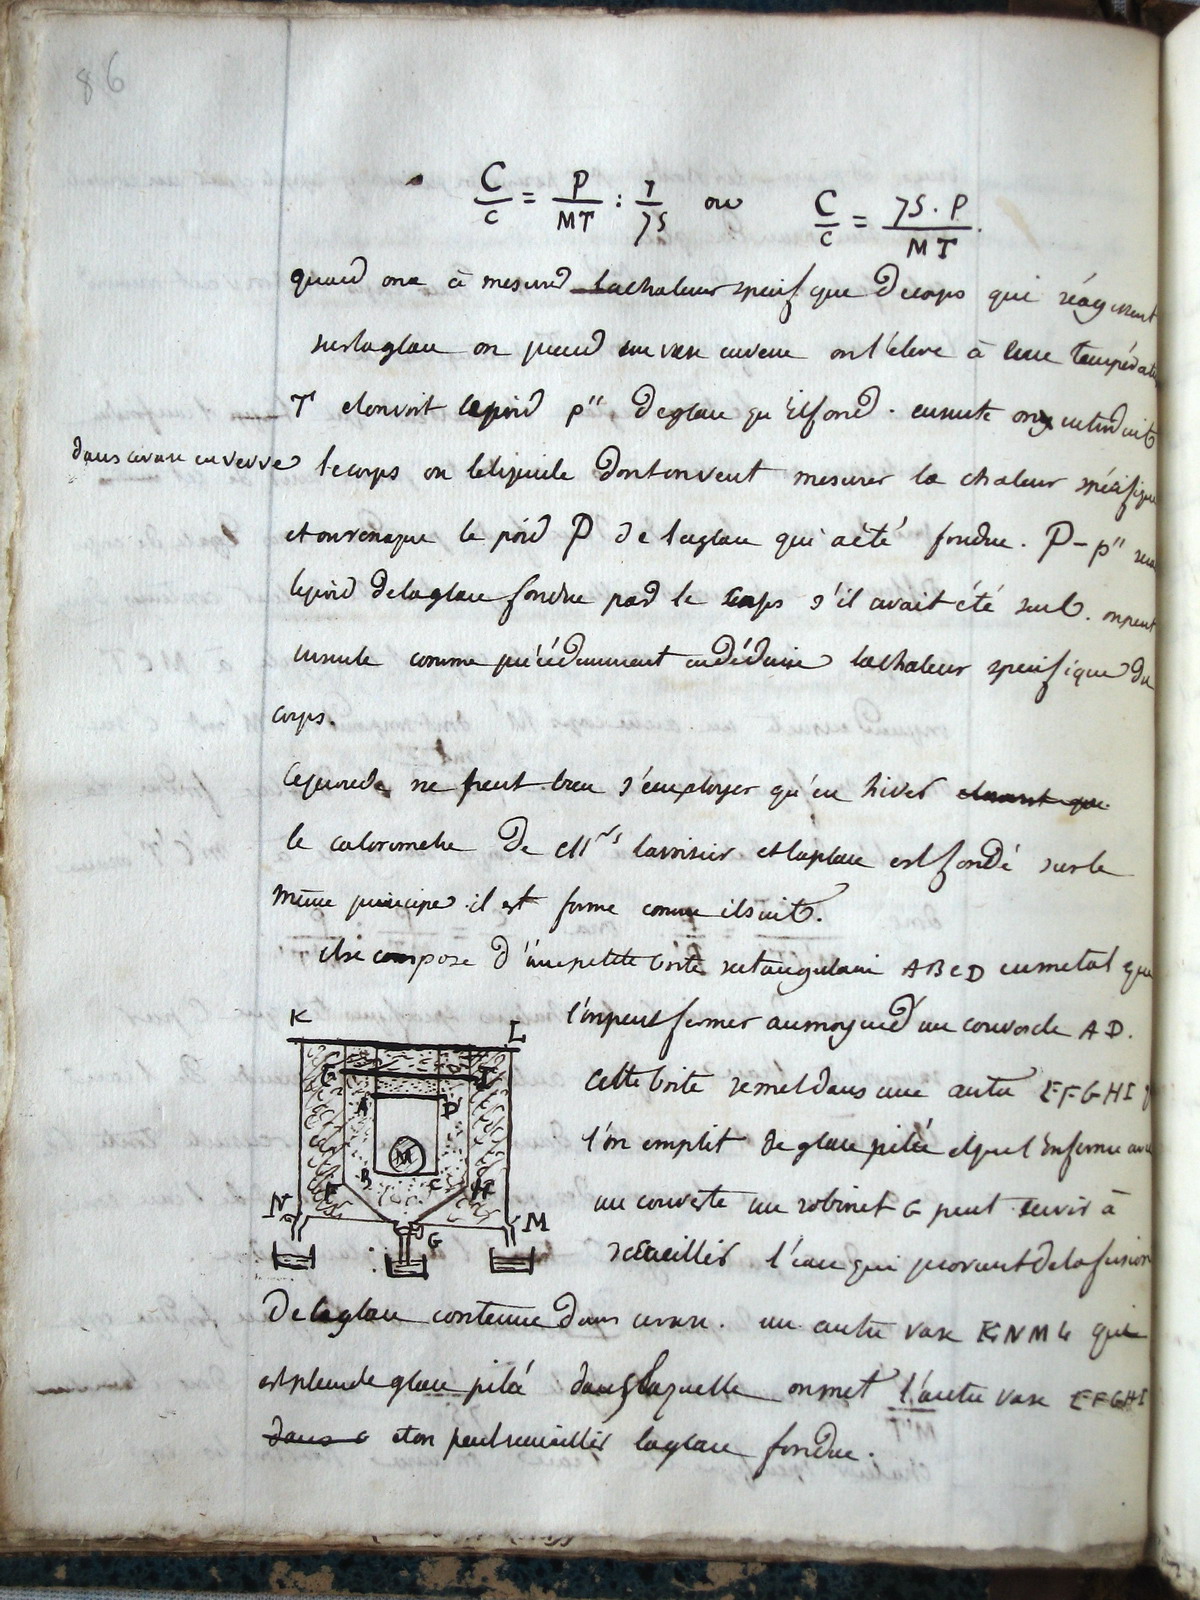 86
C/c = P/MT : 1/75 ou C/c = 75 . P/MT .
quand on a à mesurer la chaleur specifique de corps qui réagissent
sur la glace on prend un vase en verre on l'éleve à une températ
T et on voit le poid p'' de glace qu'il fond . ensuite on y introduit
dans ce vase en verre le corps ou le liquide dont on veut mesurer la chaleur spécifique
et on remarque le poid P de la glace qui a été fondue . P - p'' sera
le poid de la glace fondue par le corps s'il avait été seul . on peut
ensuite comme précédemment en déduire la chaleur specifique du
corps .
Ce procédé ne peut bien s'employer qu'en hiver
le calorimetre de MM rs lavoisier et laplace est fondé sur le
même principe il est formé comme il suit .
il se compose d'une petite boite rectangulaire ABCD en metal que
l'on peut fermer au moyen d'un couvercle AD .
Cette boite se met dans une autre EFGHI q
l'on emplit de glace pilée et que l'on ferme avec
un couvercle un robinet G peut servir à
recueillir l'eau qui provient de la fusion
De la glace contenue dans ce vase . un autre vase KNML qui
est plein de glace pilée dans laquelle on met l'autre vase EFGHI
dans c et on peut recueillir la glace fondue .
K
L
E I
A D
M
B C
F H
N M
G